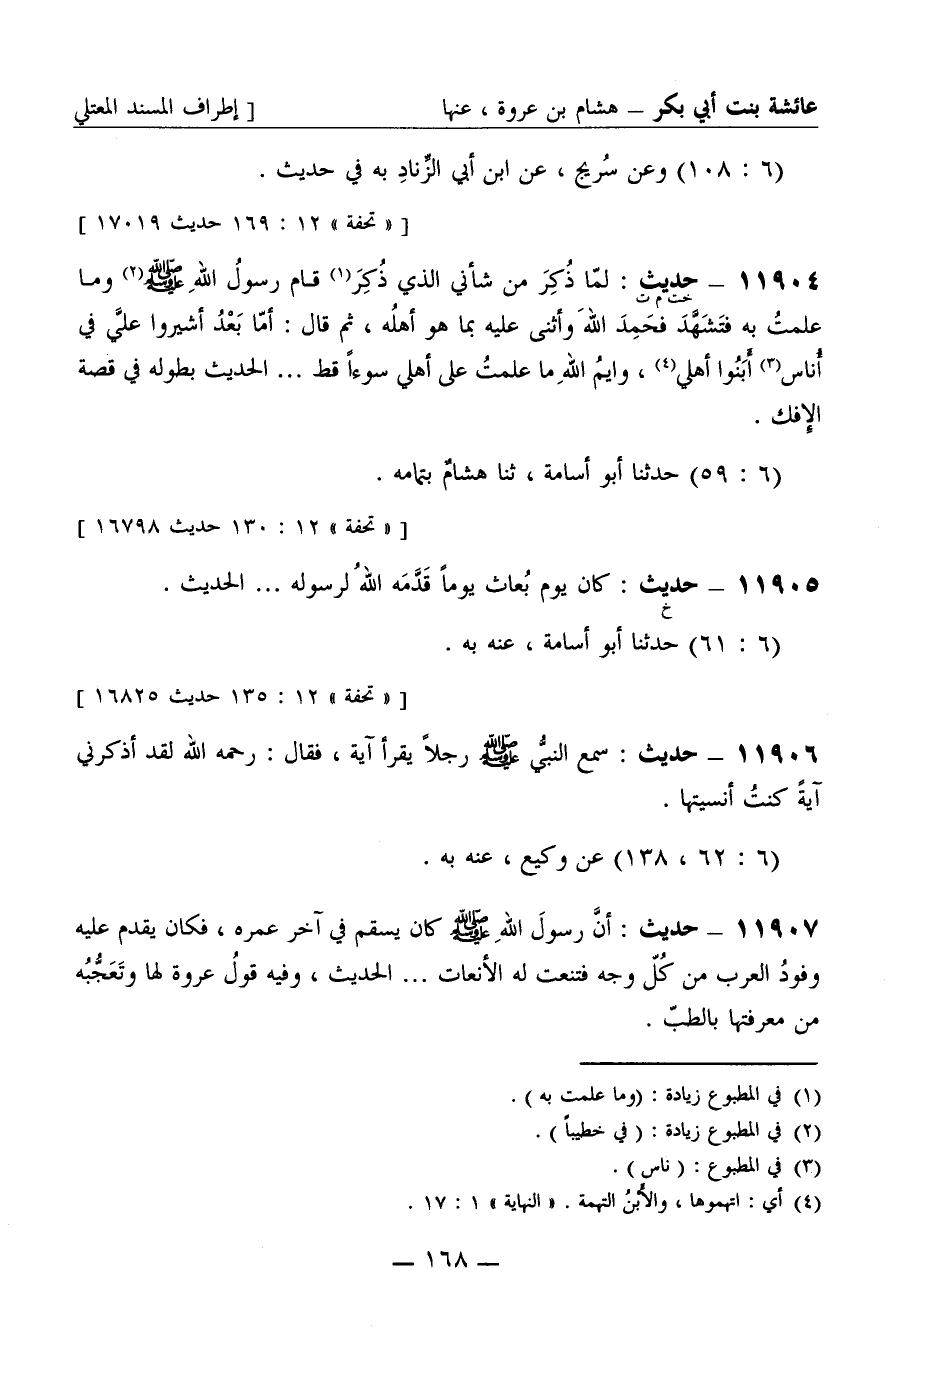 عائشة بنت أبي بكر – هشام بن عروة ، عنها [ إطراف المسند المعتلي
(٦ : ١٠٨) وعن سُريج ، عن ابن أبي الزِّنادِ به في حديث .
[ « تحفة » ١٢ : ١٦٩ حديث ١٧٠١٩ ]
١١٩٠٤ – حديث : لمّا ذُكِرَ من شأني الذي ذُكِرَ(١) قام رسولُ اللهِ ﷺ(٢) وما
خت م ت
علمتُ به فتَشَهَّدَ فحَمِدَ اللهَ وأثنى عليه بما هو أهلُه ، ثم قال : أمّا بَعْدُ أشيروا عليَّ في
أُناس(٣) أَبَنُوا أهلي(٤) ، وايمُ اللهِ ما علمتُ على أهلي سوءاً قط ... الحديث بطوله في قصة
الإِفك .
(٦ : ٥٩) حدثنا أبو أسامة ، ثنا هشامٌ بتمامه .
[ « تحفة » ١٢ : ١٣٠ حديث ١٦٧٩٨ ]
١١٩٠٥ – حديث : كان يوم بُعاث يوماً قَدَّمَه اللهُ لرسوله ... الحديث .
خ
(٦ : ٦١) حدثنا أبو أسامة ، عنه به .
[ « تحفة » ١٢ : ١٣٥ حديث ١٦٨٢٥ ]
١١٩٠٦ – حديث : سمع النبيُّ ﷺ رجلاً يقرأ آية ، فقال : رحمه الله لقد أذكرني
آيةً كنتُ أنسيتها .
(٦ : ٦٢ ، ١٣٨) عن وكيع ، عنه به .
١١٩٠٧ – حديث : أنَّ رسولَ اللهِ ﷺ كان يسقم في آخر عمره ، فكان يقدم عليه
وفودُ العرب من كُلّ وجه فتنعت له الأنعات ... الحديث ، وفيه قولُ عروة لها وتَعَجُّبُه
من معرفتها بالطبّ .
(١) في المطبوع زيادة : (وما علمت به ) .
(٢) في المطبوع زيادة : ( في خطيباً ) .
(٣) في المطبوع : ( ناس ) .
(٤) أي : اتهموها ، والأَبنُ التهمة . « النهاية » ١ : ١٧ .
– ١٦٨ –